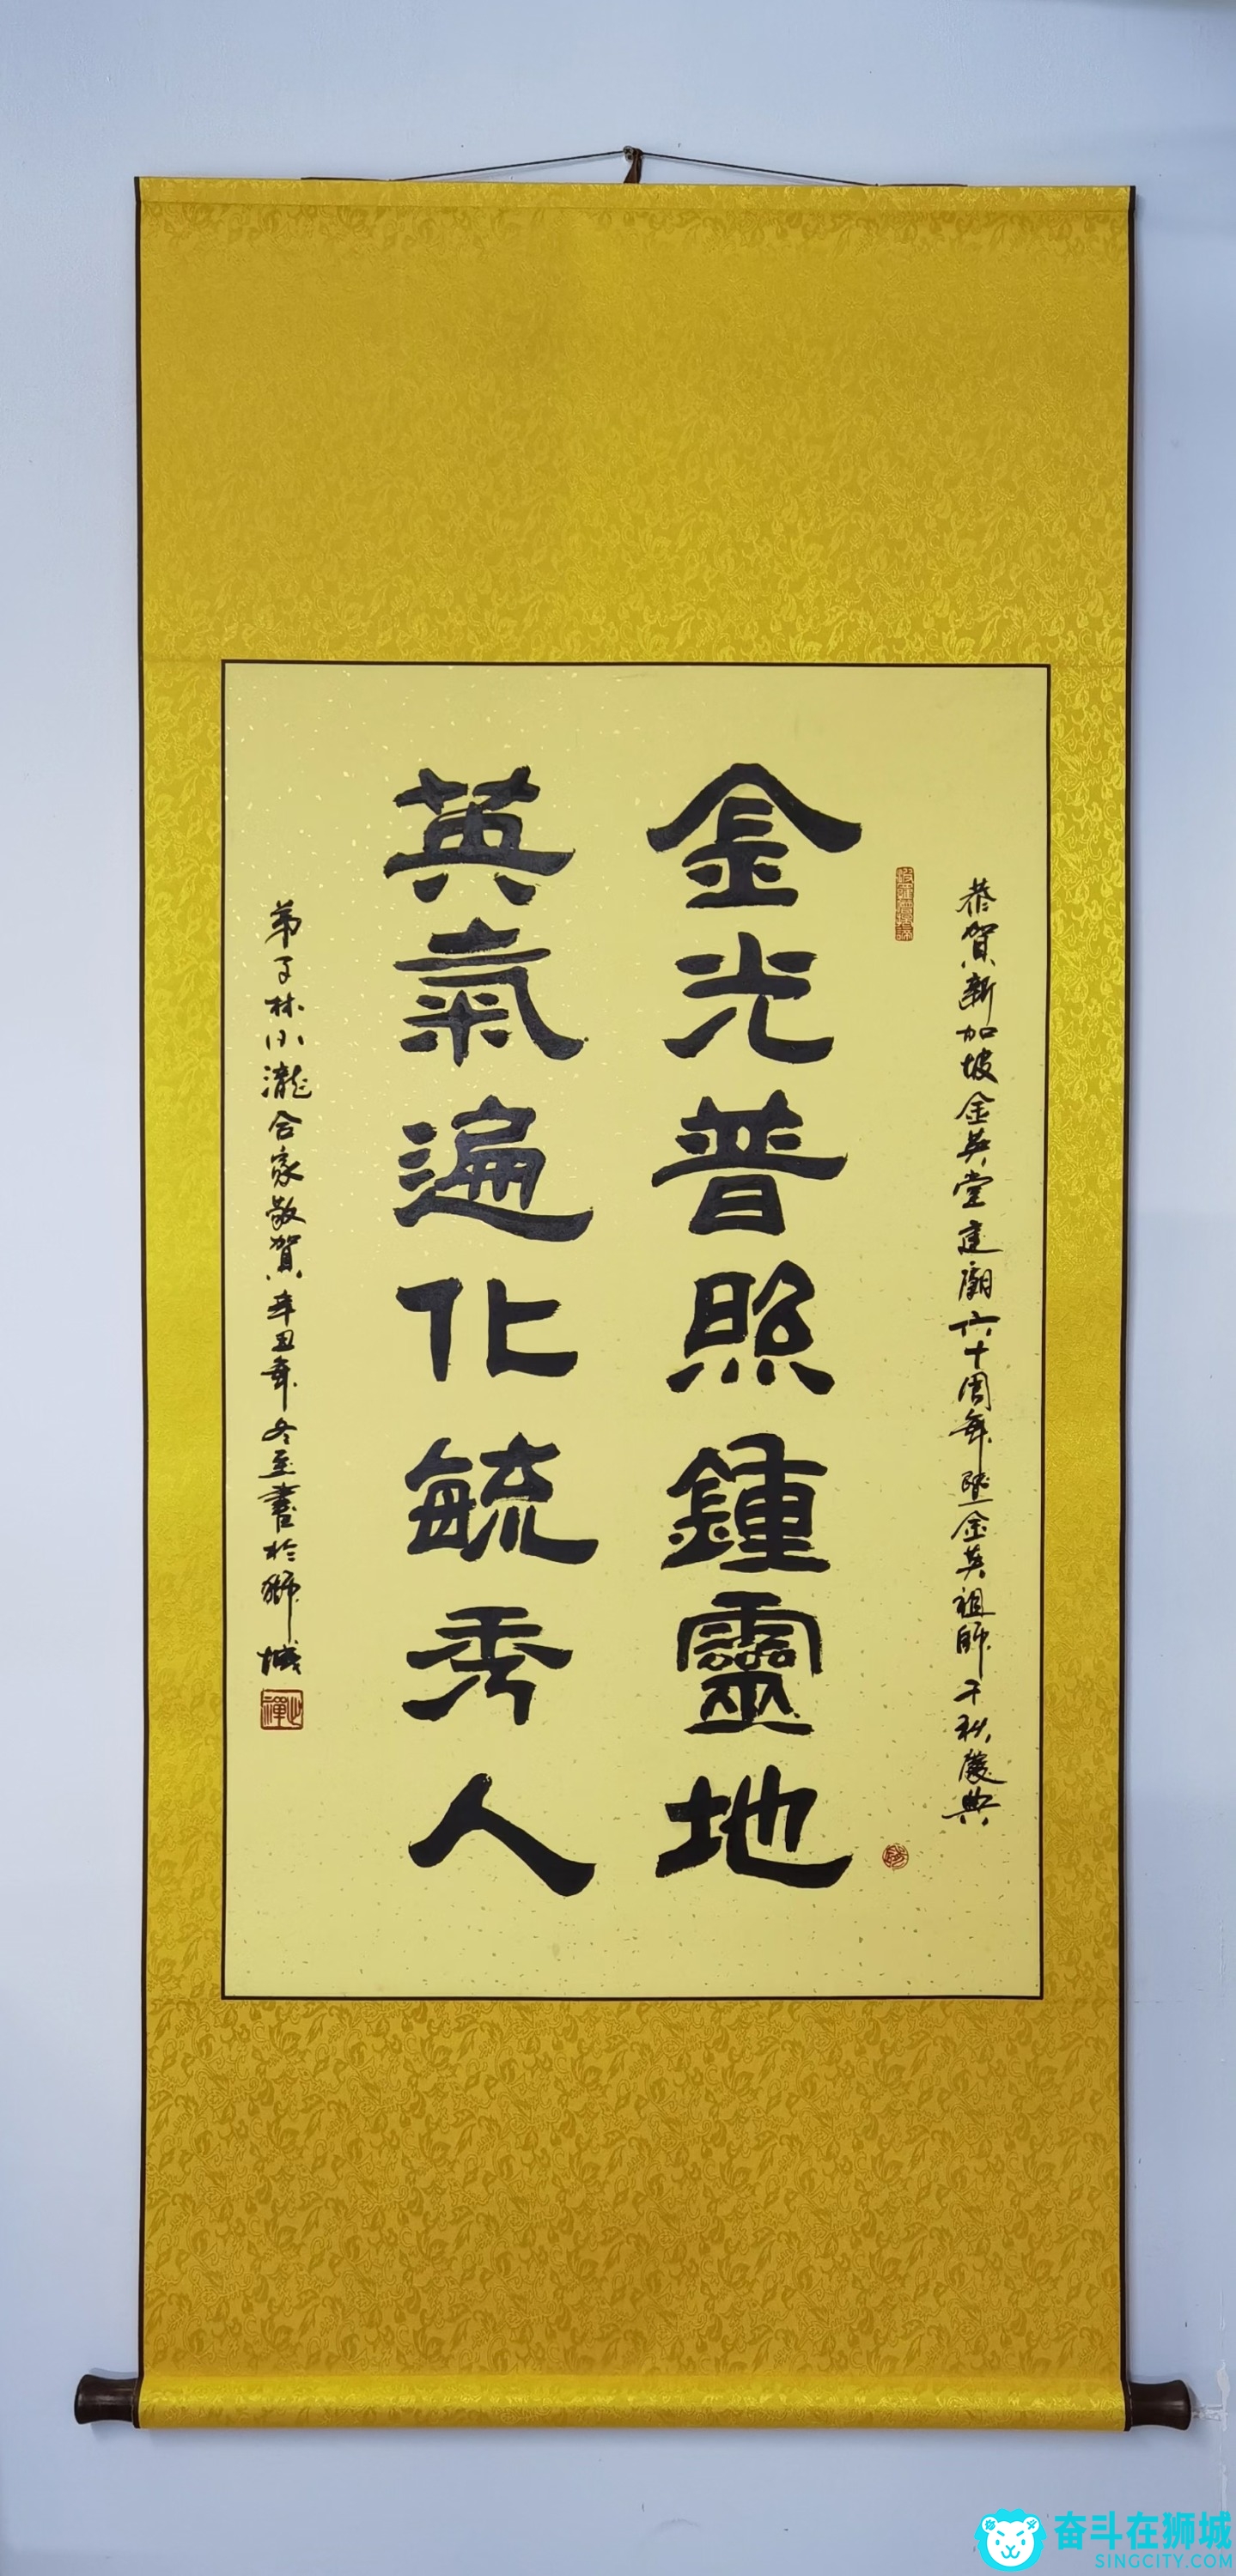 恭賀新加坡金英堂建廟六十周年暨金英祖師千秋慶典
金光普照鍾靈地
英氣遍化毓秀人
弟子林小瀧合家敬賀辛丑年冬至書於獅城
奋斗在狮城
SINGCITY.COM